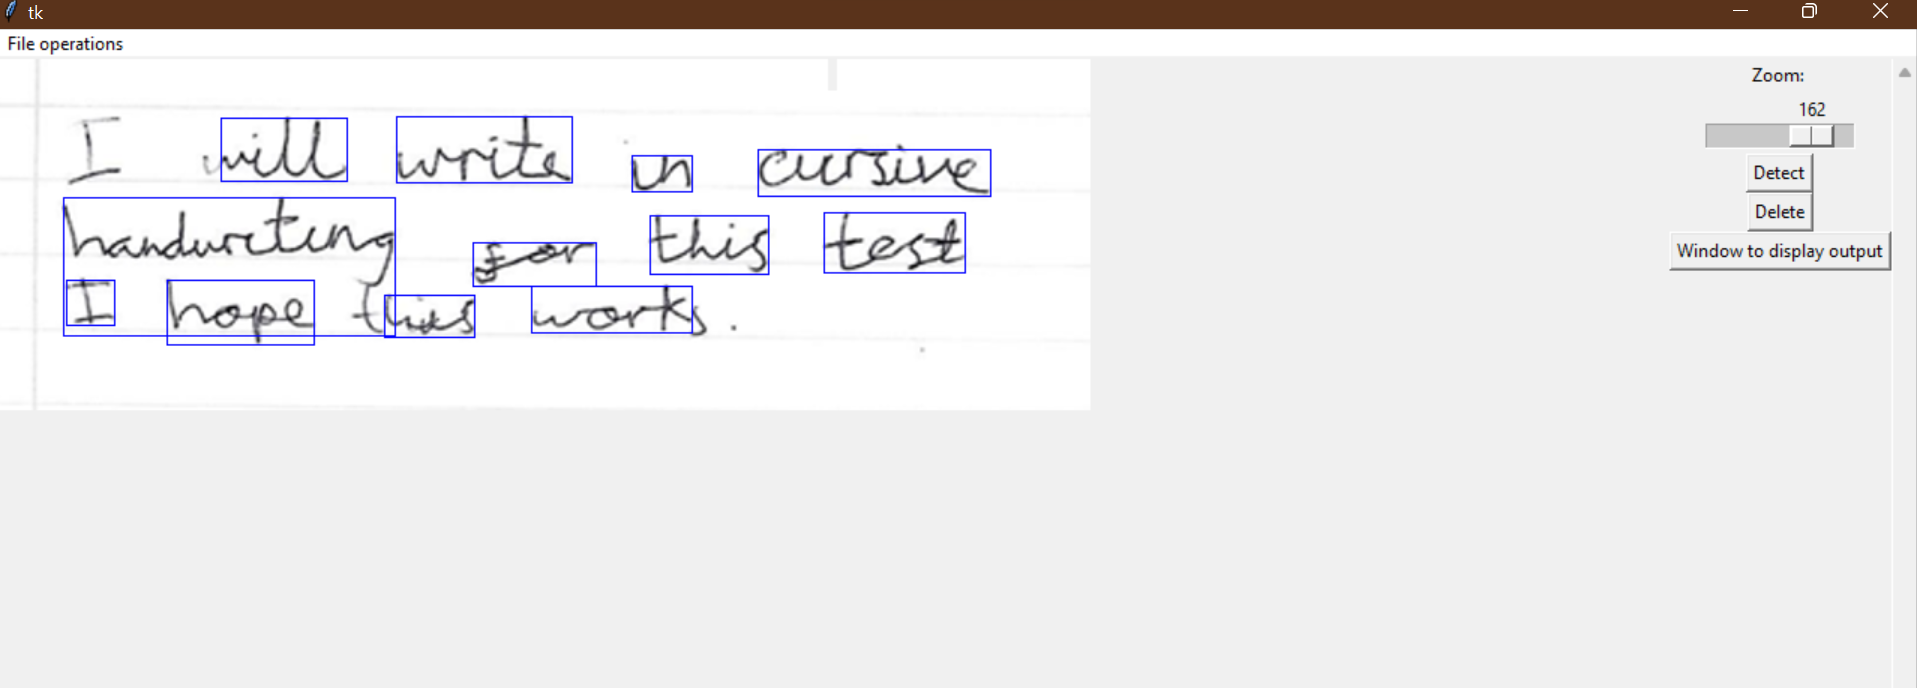 tk
File operations
I will write in cursive
handwriting for this test
I hope this works.
Zoom:
162
Detect
Delete
Window to display output